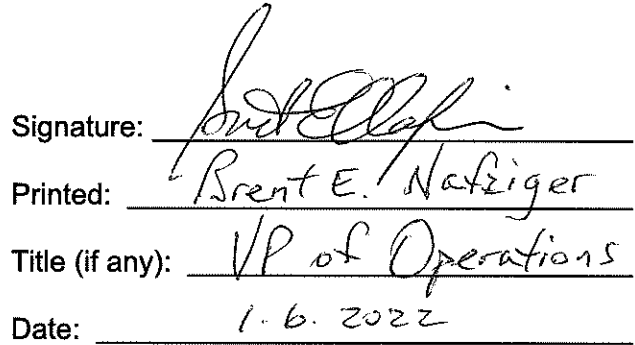 Signature:
Printed: Brent E. Nafziger
Title (if any): VP of Operations
Date: 1.6.2022